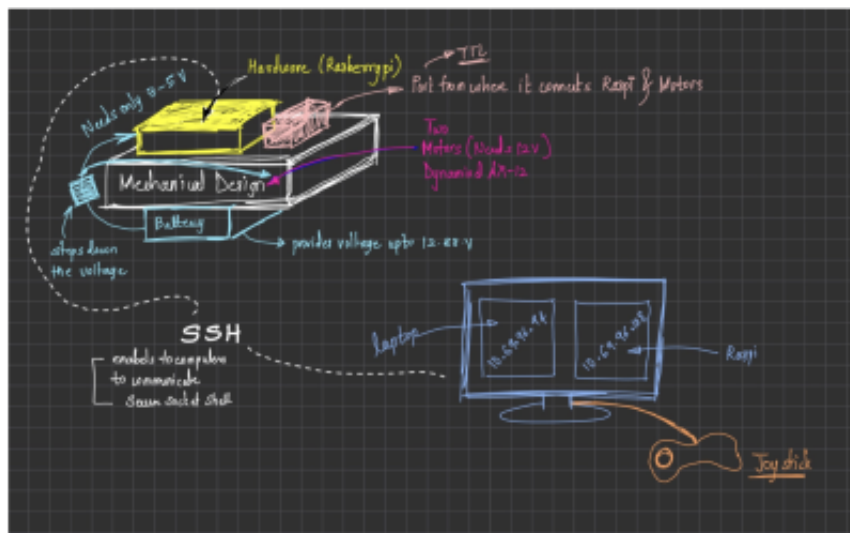 TTL
Hardware (Rasberrypi)
Port from where it connects Raspi & Motors
Needs only 0-5V
Two
Motors (Needs 12V)
Dynamixel AX-12
Mechanical Design
Battery
provides voltage upto 12.88 V
steps down
the voltage
SSH
enabels to computers
to communicate
Secure Socket Shell
laptop
10.69.96.96
10.69.96.08
Raspi
Joystick